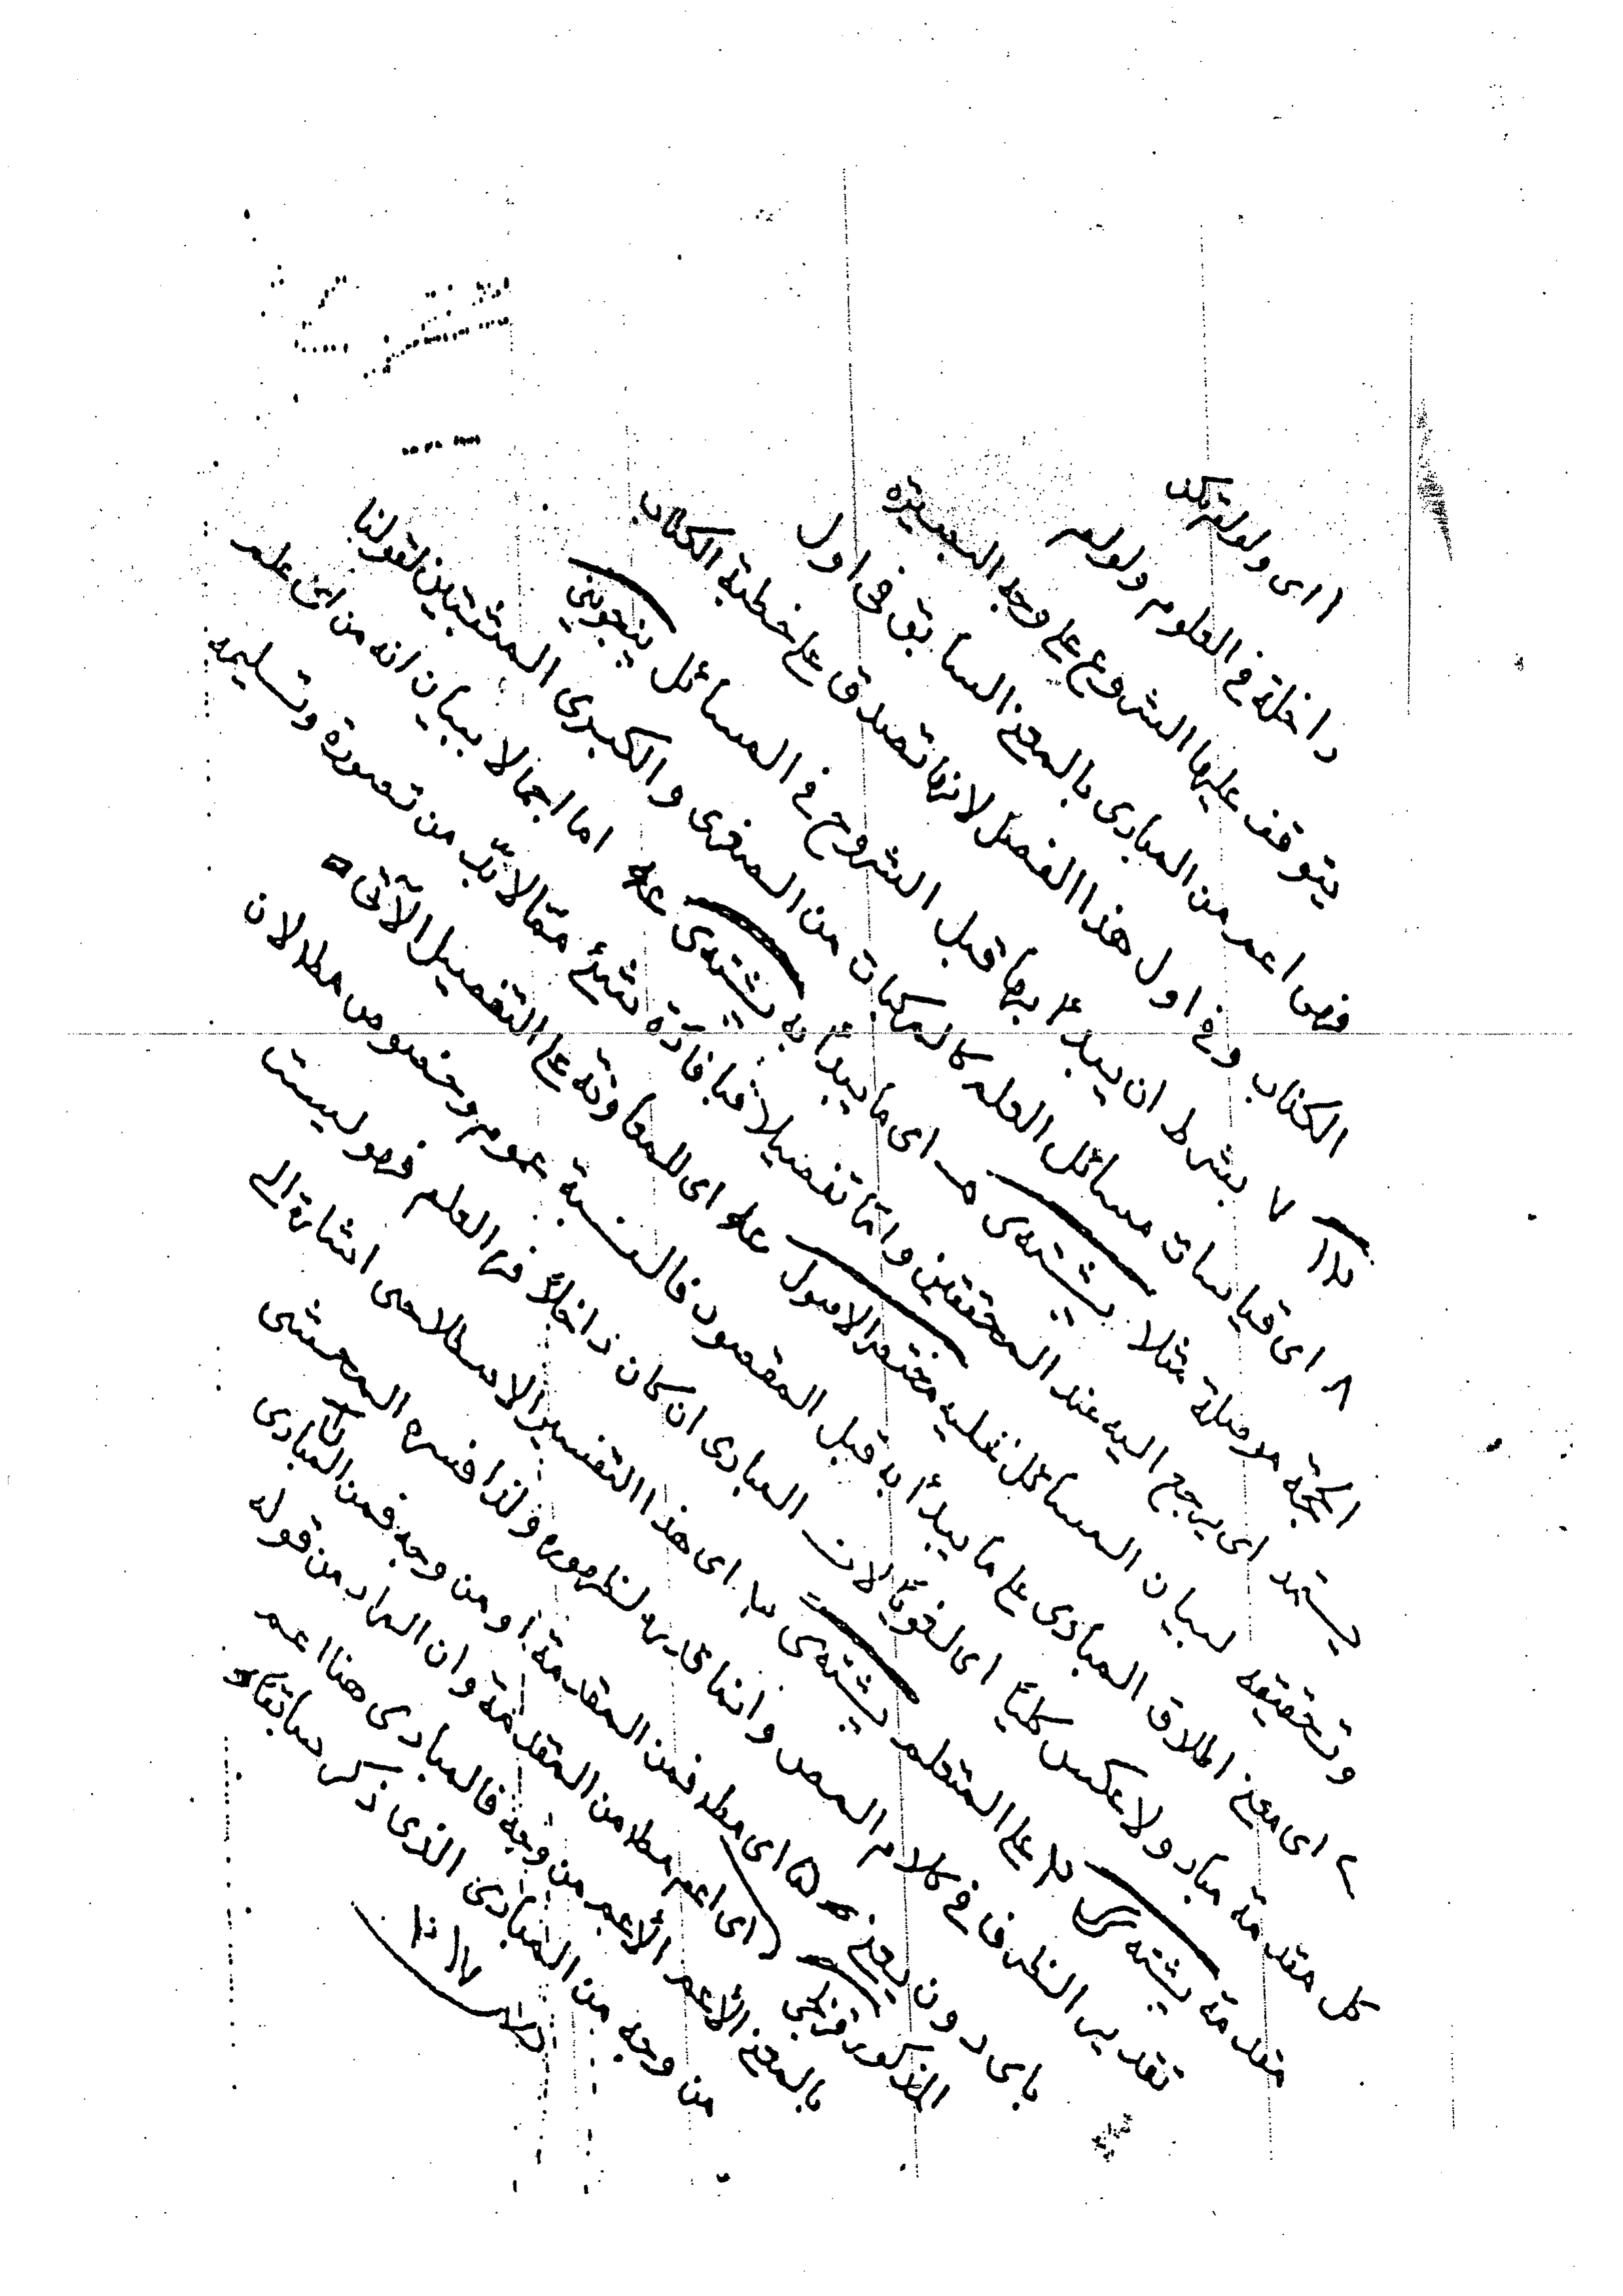 ١ اى ولو لم تكن
داخلة فى العلوم ولو لم
يتوقف عليها الشروع على وجه البصيرة
فهى اعم من المبادى بالمعنى السابق فى اول
الكتاب وفى اول هذا الفصل لانها تصدق على خطبة الكتاب
٧ بشرط ان يبدأ بها قبل الشروع فى المسائل ينجوينى
٨ اى قياسات مسائل العلم كالمركبات من الصغرى والكبرى المثبتين لقولنا
الحجة موصلة مثلا يشتەى اى ما يبدأ به يشتەى اما اجمالا ببيان انه من اى علم
يستمد اى يرجع اليه عند المحققين واما تفصيلا فبافادة شئ مما لا بد من تصوره وتسليمه
وتحقيقه لبيان المسائل نقليه مختصر الاصول اى للمعاونة على التفصيل الآتى
٢ اى معنى اطلاق المبادى على ما يبدأ به قبل المقصود فالنسبة عموم وخصوص مط لان
كل مقدمة مباد ولا عكس كليًّا اى لغويًّا لان المبادى ان كان داخلاً فى العلم فهو ليست
مقدمة يشتەى على المتعلم يشتەى اى هذا التفسير الاصطلاحى اشارة الى
تقدير الظرف فى كلام المص وانما يره لظهوره ولذا فسره المحشى
باى دون يعنى ۵ اى مط فمن المقدمة او من وجه فمن المبادى
المذكور قزلجى اى اعم مط من المقدمة وان المراد من قوله
بالمعنى الأعم الأعم من وجه فالمبادى هنا اعم
من وجه من المبادى الذى ذكر سابقا